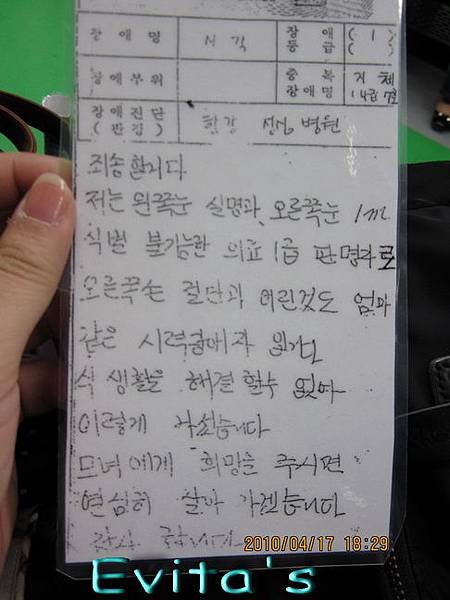 장애명 시각 장애등급 ( 1 )
장애부위 중복장애명 지체 14급 7호
장애진단 (판정) 한강 성심 병원
죄송합니다
저는 왼쪽눈 실명과 오른쪽눈 1m
식별 불가능란 의료 1급 판명자로
오른쪽손 절단과 어린것도 엄마
같은 시력장애자 입니다
식 생활을 해결 할수 없어
이렇게 나섰습니다
모녀에게 희망을 주시면
열심히 살아 가겠습니다
감사 합니다
2010/04/17 18:29
Evita's